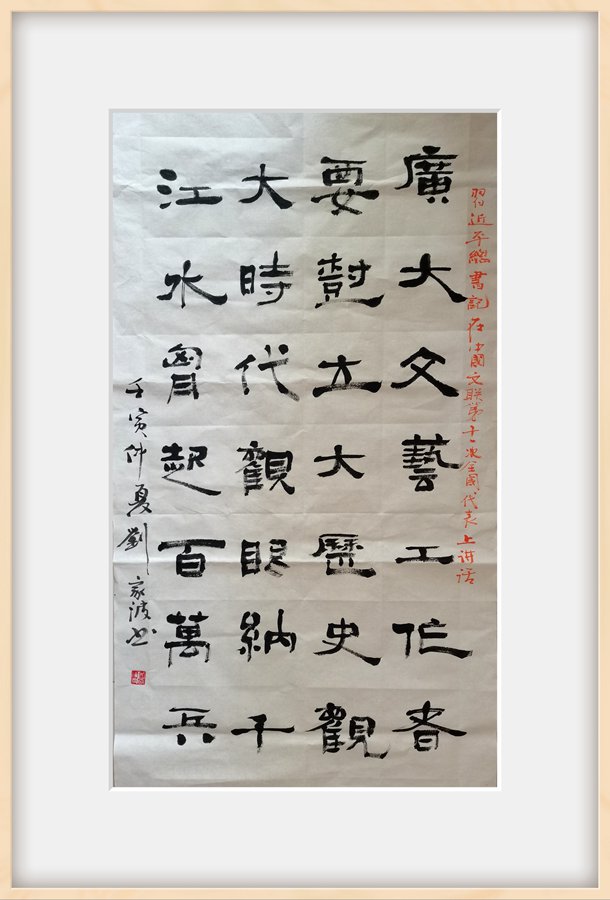 習近平總書記在中國文联第十一次全國代表上讲话
廣大文藝工作者
要尌立大歷史觀
大時代觀眼納千
江水胷起百萬兵
壬寅仲夏劉家波书